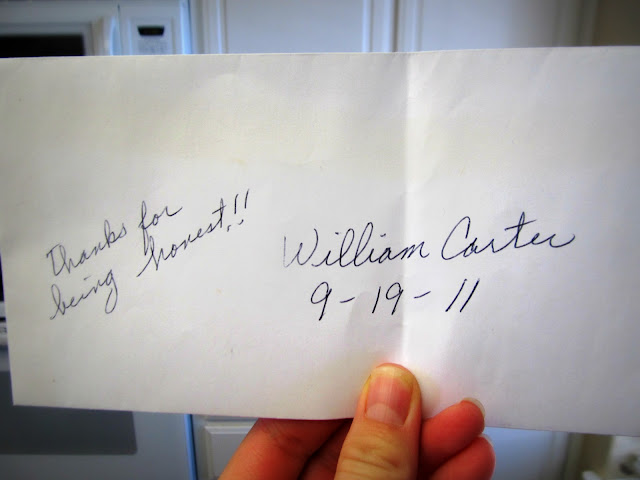 Thanks for
being honest!!
William Carter
9-19-11